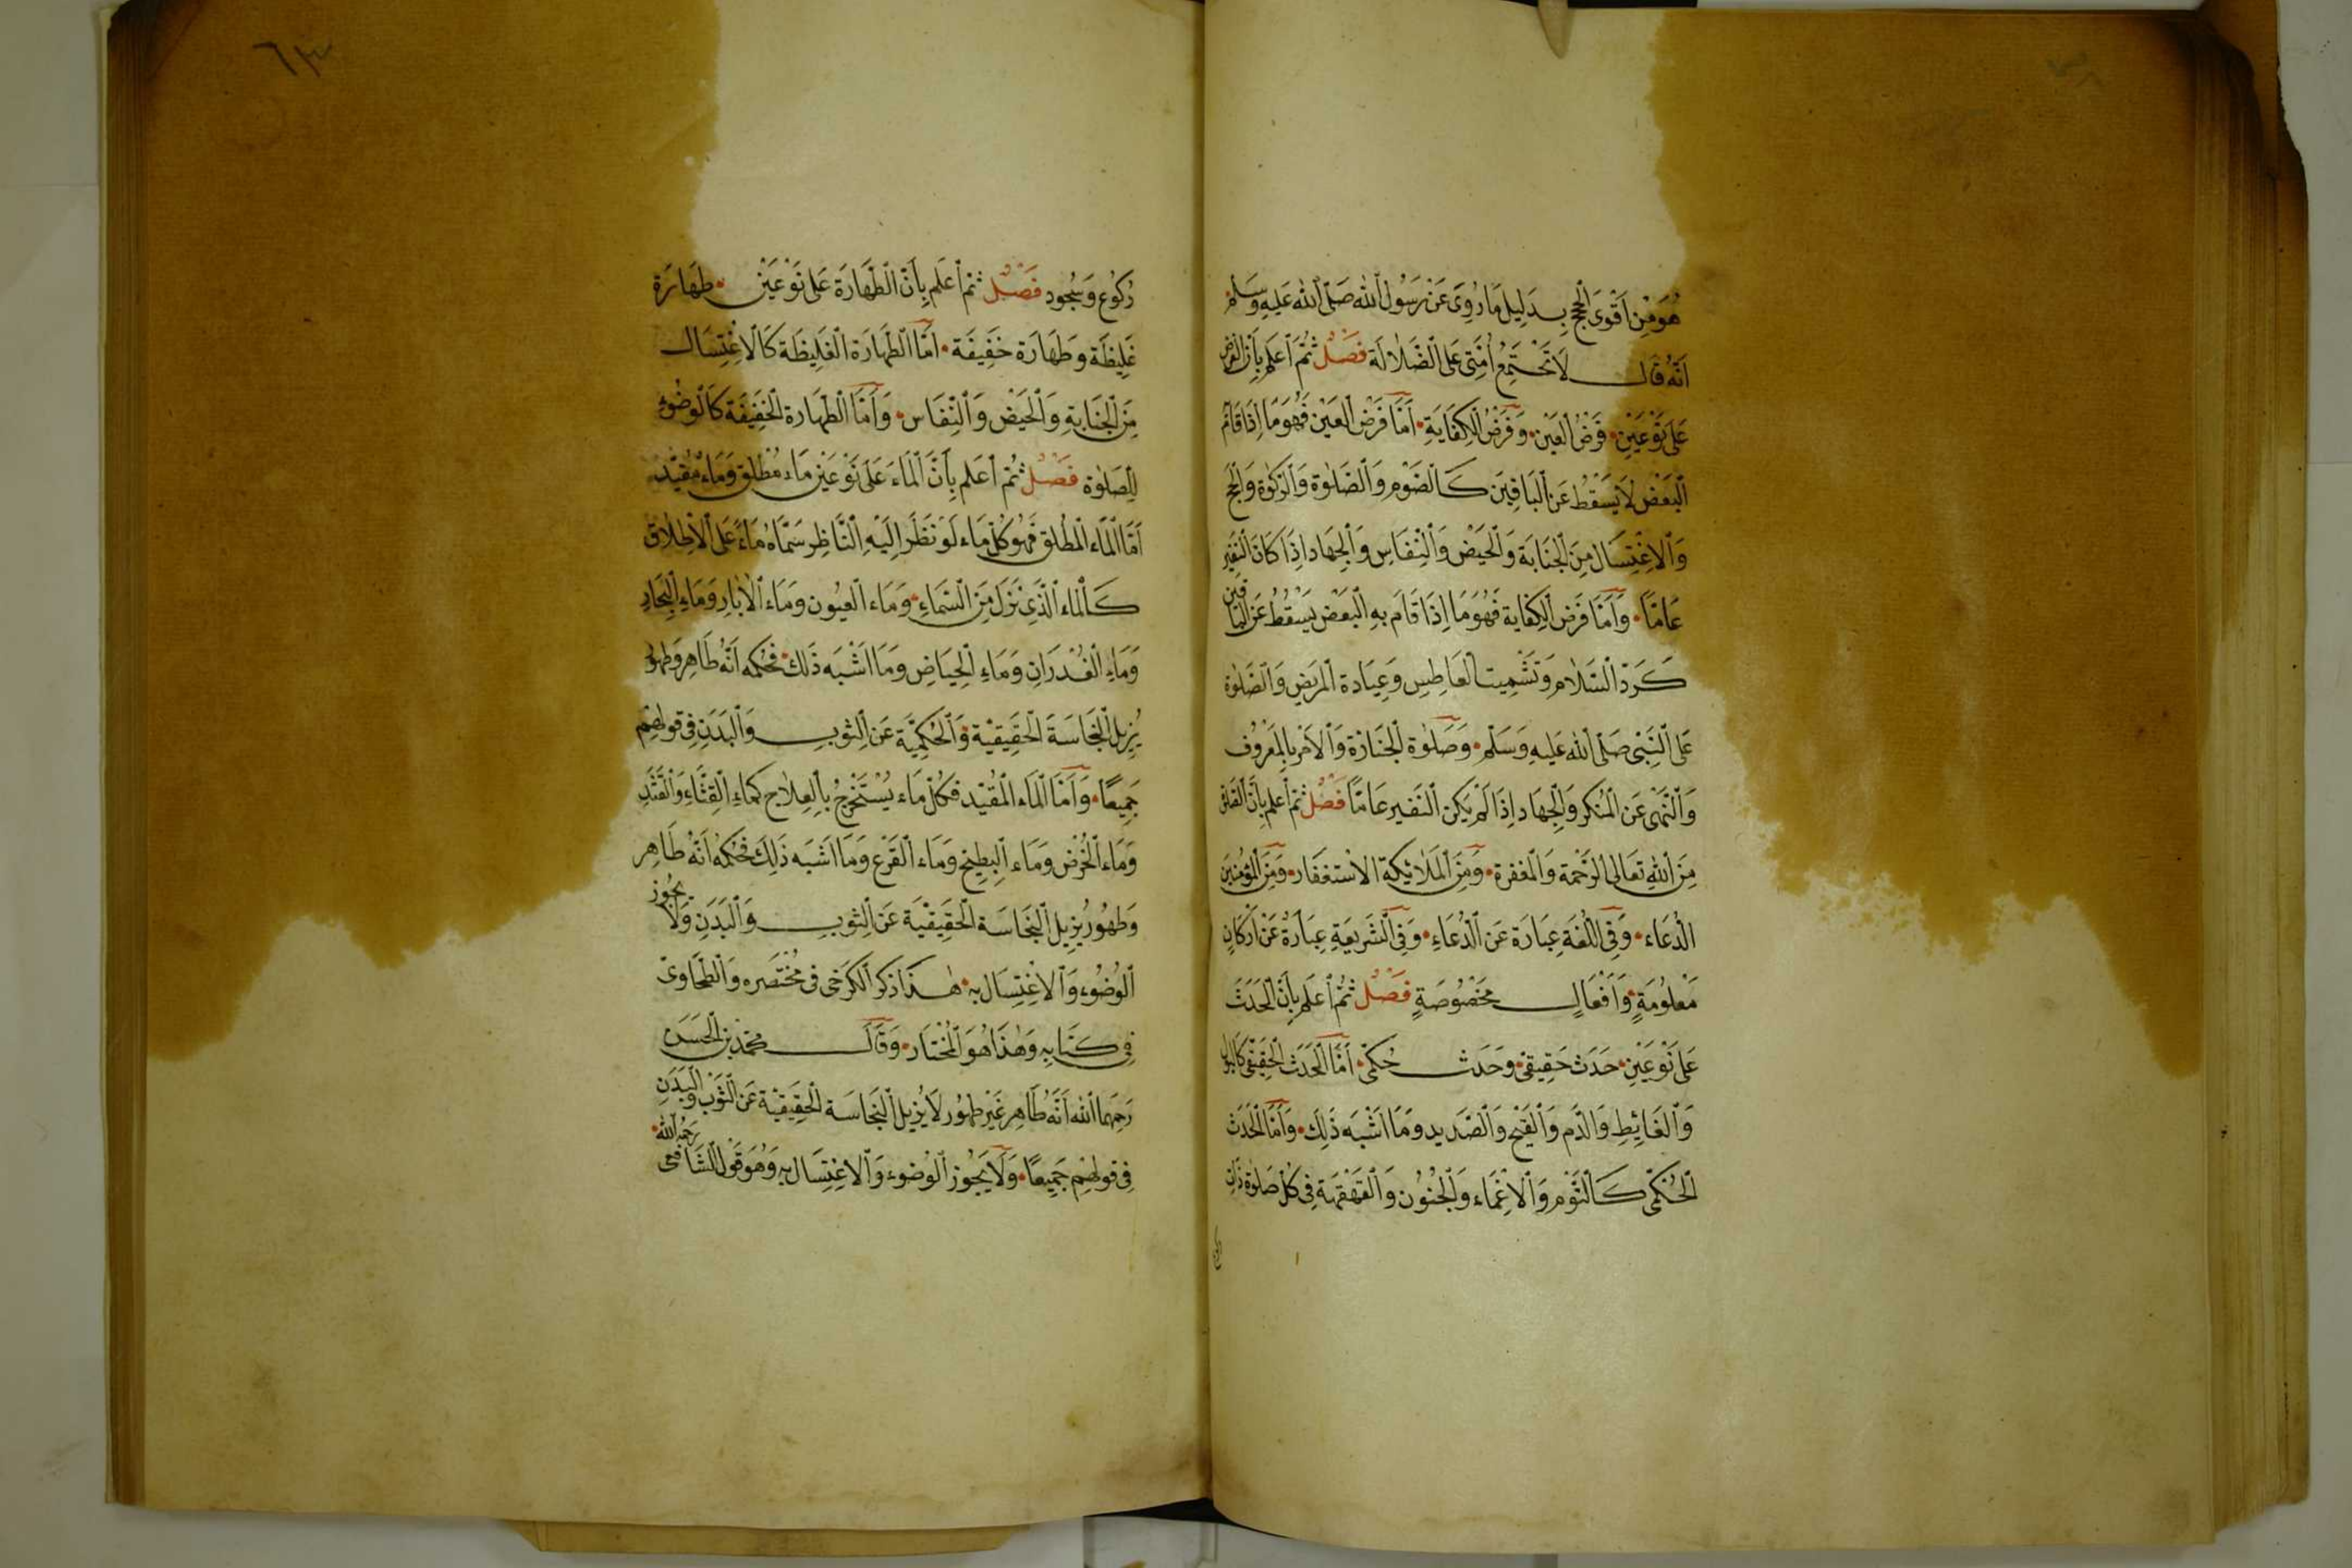 هُوَ مِنْ أَقْوَى الْحُجَجِ بِدَلِيلِ مَا رُوِيَ عَنْ رَسُولِ اللهِ صَلَّى اللهُ عَلَيْهِ وَسَلَّمَ
أَنَّهُ قَالَ لَا تَجْتَمِعُ أُمَّتِي عَلَى الضَّلَالَةِ فَصْلٌ ثُمَّ اعْلَمْ بِأَنَّ الْفَرْضَ
عَلَى نَوْعَيْنِ فَرْضُ الْعَيْنِ وَفَرْضُ الْكِفَايَةِ أَمَّا فَرْضُ الْعَيْنِ فَهُوَ مَا إِذَا قَامَ
الْبَعْضُ لَا يَسْقُطُ عَنِ الْبَاقِينَ كَالصَّوْمِ وَالصَّلٰوةِ وَالزَّكٰوةِ وَالْحَجِّ
وَالْاِغْتِسَالِ مِنَ الْجَنَابَةِ وَالْحَيْضِ وَالنِّفَاسِ وَالْجِهَادِ إِذَا كَانَ النَّفِيرُ
عَامًّا وَأَمَّا فَرْضُ الْكِفَايَةِ فَهُوَ مَا إِذَا قَامَ بِهِ الْبَعْضُ يَسْقُطُ عَنِ الْبَاقِينَ
كَرَدِّ السَّلَامِ وَتَشْمِيتِ الْعَاطِسِ وَعِيَادَةِ الْمَرِيضِ وَالصَّلٰوةِ
عَلَى النَّبِيِّ صَلَّى اللهُ عَلَيْهِ وَسَلَّمَ وَصَلٰوةِ الْجَنَازَةِ وَالْأَمْرِ بِالْمَعْرُوفِ
وَالنَّهْيِ عَنِ الْمُنْكَرِ وَالْجِهَادِ إِذَا لَمْ يَكُنِ النَّفِيرُ عَامًّا فَصْلٌ ثُمَّ اعْلَمْ بِأَنَّ الصَّلٰوةَ
مِنَ اللهِ تَعَالَى الرَّحْمَةُ وَالْمَغْفِرَةُ وَمِنَ الْمَلَائِكَةِ الْاِسْتِغْفَارُ وَمِنَ الْمُؤْمِنِينَ
الدُّعَاءُ وَفِي اللُّغَةِ عِبَارَةٌ عَنِ الدُّعَاءِ وَفِي الشَّرِيعَةِ عِبَارَةٌ عَنْ أَرْكَانٍ
مَعْلُومَةٍ وَأَفْعَالٍ مَخْصُوصَةٍ فَصْلٌ ثُمَّ اعْلَمْ بِأَنَّ الْحَدَثَ
عَلَى نَوْعَيْنِ حَدَثٌ حَقِيقِيٌّ وَحَدَثٌ حُكْمِيٌّ أَمَّا الْحَدَثُ الْحَقِيقِيُّ كَالْبَوْلِ
وَالْغَائِطِ وَالدَّمِ وَالْقَيْحِ وَالصَّدِيدِ وَمَا أَشْبَهَ ذَلِكَ وَأَمَّا الْحَدَثُ
الْحُكْمِيُّ كَالنَّوْمِ وَالْاِغْمَاءِ وَالْجُنُونِ وَالْقَهْقَهَةِ فِي كُلِّ صَلٰوةٍ ذَاتِ
رُكُوعٍ وَسُجُودٍ فَصْلٌ ثُمَّ اعْلَمْ بِأَنَّ الطَّهَارَةَ عَلَى نَوْعَيْنِ طَهَارَة
غَلِيظَة وَطَهَارَة خَفِيفَة أَمَّا الطَّهَارَة الْغَلِيظَة كَالْاِغْتِسَالِ
مِنَ الْجَنَابَةِ وَالْحَيْضِ وَالنِّفَاسِ وَأَمَّا الطَّهَارَة الْخَفِيفَة كَالْوُضُوءِ
لِلصَّلٰوةِ فَصْلٌ ثُمَّ اعْلَمْ بِأَنَّ الْمَاءَ عَلَى نَوْعَيْنِ مَاء مُطْلَق وَمَاء مُقَيَّد
أَمَّا الْمَاء الْمُطْلَق فَهُوَ كُلُّ مَاء لَوْ نَظَرَ إِلَيْهِ النَّاظِر سَمَّاهُ مَاءً عَلَى الْاِطْلَاقِ
كَالْمَاء الَّذِي نَزَلَ مِنَ السَّمَاءِ وَمَاء الْعُيُونِ وَمَاء الْآبَارِ وَمَاءِ الْبِحَارِ
وَمَاءِ الْغُدْرَانِ وَمَاءِ الْحِيَاضِ وَمَا أَشْبَهَ ذَلِكَ فَحُكْمُهُ أَنَّهُ طَاهِر وَطَهُور
يُزِيلُ النَّجَاسَةَ الْحَقِيقِيَّةَ وَالْحُكْمِيَّة عَنِ الثَّوْبِ وَالْبَدَنِ فِي قَوْلِهِمْ
جَمِيعًا وَأَمَّا الْمَاء الْمُقَيَّد فَكُلُّ مَاء يُسْتَخْرَجُ بِالْعِلَاجِ كَمَاءِ الْقِثَّاءِ وَالْقَثَدِ
وَمَاء الْحُرُضِ وَمَاء الْبِطِّيخِ وَمَاء الْقَرْعِ وَمَا أَشْبَهَ ذَلِكَ فَحُكْمُهُ أَنَّهُ طَاهِر
وَطَهُور يُزِيلُ النَّجَاسَة الْحَقِيقِيَّة عَنِ الثَّوْبِ وَالْبَدَنِ وَلَا يَجُوز
الْوُضُوء وَالْاِغْتِسَال بِهِ هٰذَا ذَكَرَ الْكَرْخِي فِي مُخْتَصَرِهِ وَالطَّحَاوِيّ
فِي كِتَابِهِ وَهٰذَا هُوَ الْمُخْتَار وَقَالَ مُحَمَّدُ بْنُ الْحَسَنِ
رَحِمَهُمَا اللهُ أَنَّهُ طَاهِر غَيْر طَهُور لَا يُزِيلُ النَّجَاسَة الْحَقِيقِيَّة عَنِ الثَّوْبِ وَالْبَدَنِ
فِي قَوْلِهِمْ جَمِيعًا وَلَا يَجُوز الْوُضُوء وَالْاِغْتِسَال بِهِ وَهُوَ قَوْلُ الشَّافِعِي رَحِمَهُ اللهُ